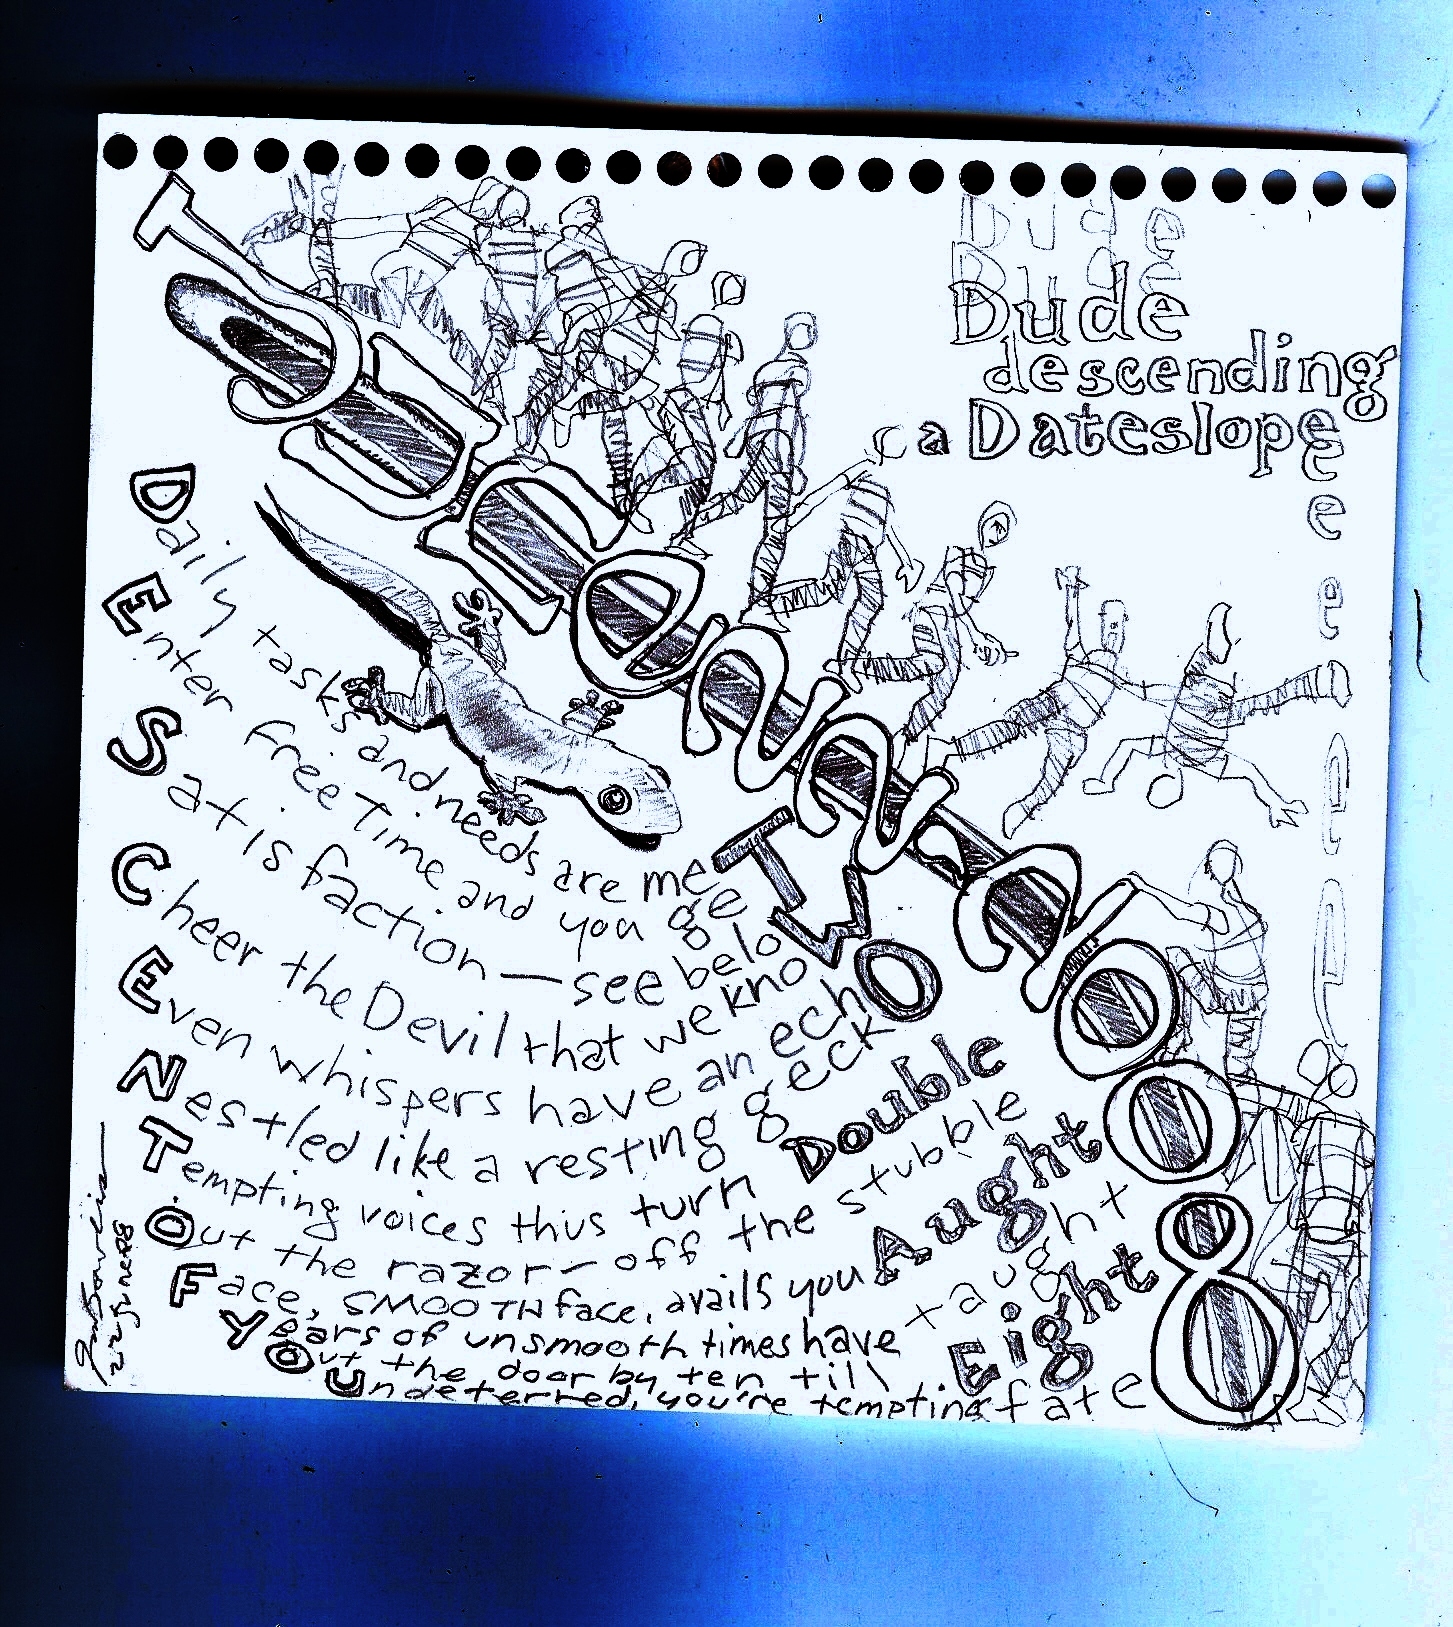 Dude
Dude
Dude
descending
a Dateslope
e
e
e
e
e
June 22, 2008
Daily tasks and needs are me
Enter free time and you ge
Satisfaction — see belo
Cheer the Devil that we kno
Even whispers have an ech
Nestled like a resting geck
TWO
Tempting voices thus turn Double
Out the razor — off the stubble
Face, SMOOTH face, avails you Aught
Years of unsmooth times have taught
Out the door by ten till Eight
Undeterred, you're tempting fate